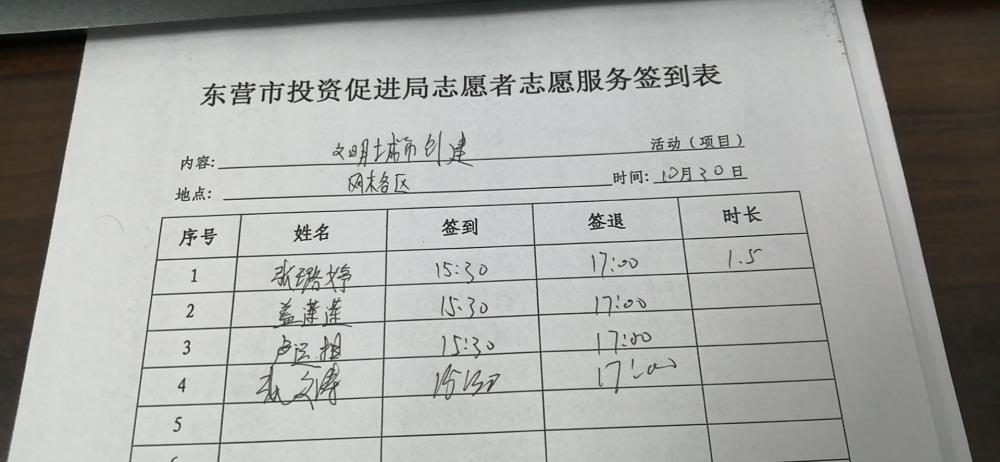 东营市投资促进局志愿者志愿服务签到表
内容: 文明城市创建 活动（项目）
地点: 网格区 时间: 10月30日
序号 姓名 签到 签退 时长
1 张璐婷 15:30 17:00 1.5
2 盖莲莲 15:30 17:00
3 卢运 15:30 17:00
4 张文涛 15:30 17:00
5